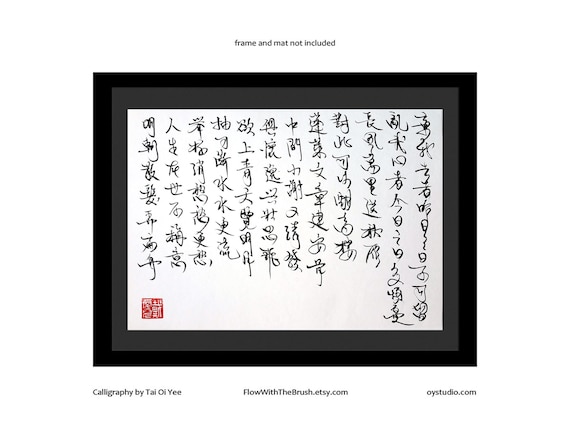 frame and mat not included
棄我去者昨日之日不可留
亂我心者今日之日多煩憂
長風萬里送秋雁
對此可以酣高樓
蓬萊文章建安骨
中間小謝又清發
俱懷逸興壯思飛
欲上青天覽明月
抽刀斷水水更流
舉杯消愁愁更愁
人生在世不稱意
明朝散髮弄扁舟
Calligraphy by Tai Oi Yee
FlowWithTheBrush.etsy.com
oystudio.com